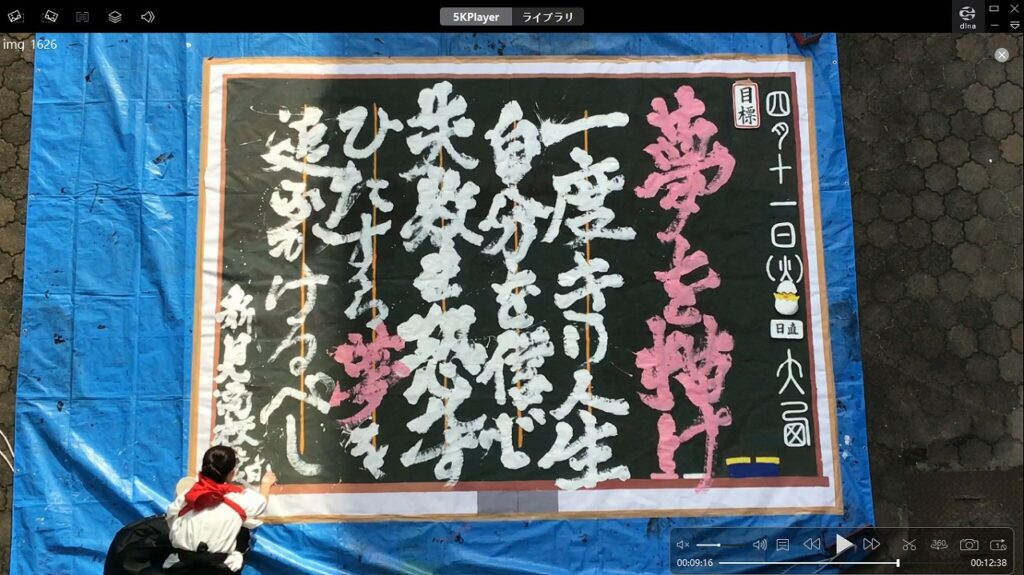 5KPlayer ライブラリ
dlna
img_1626
四月十一日(火) 日直
目標
夢を描け
一度きり人生
自分を信じ
失敗を恐れず
ひたすら夢を
追いかけるべし
新見高校
360
00:09:16
00:12:38